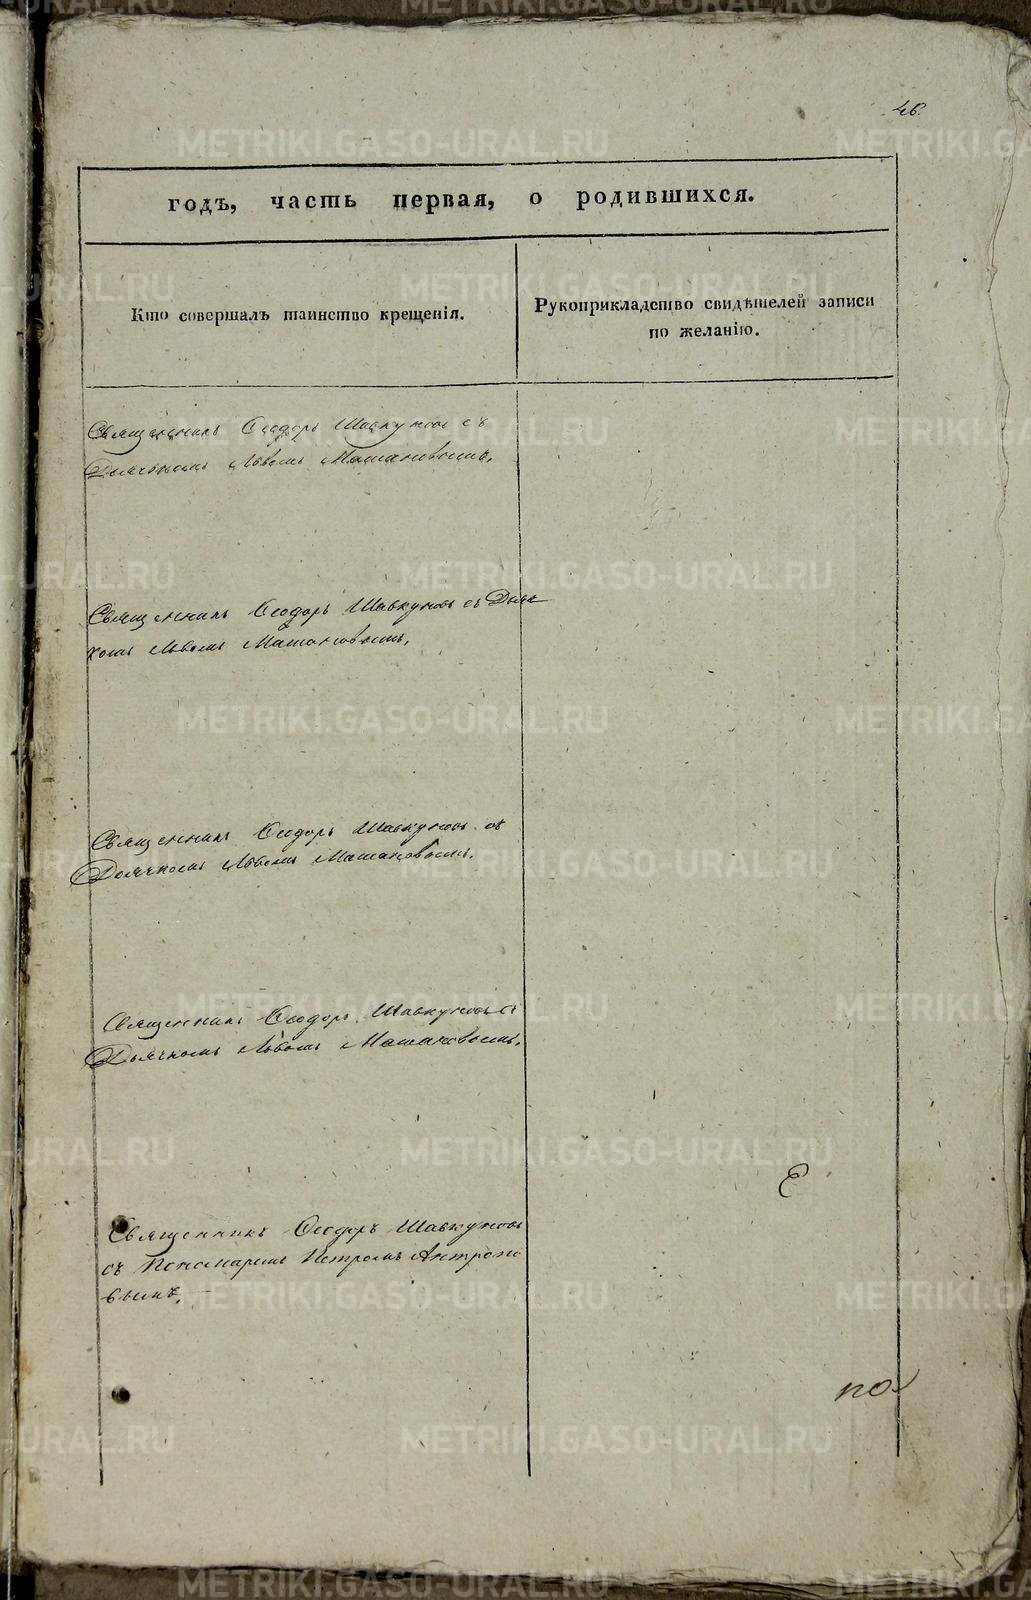 46.
годъ, часть первая, о родившихся.
Кто совершалъ таинство крещенія.
Рукоприкладство свидѣтелей записи
по желанію.
Священникъ Ѳеодоръ Шавкуновъ съ
Дьячкомъ Львомъ Машановымъ.
Священникъ Ѳеодоръ Шавкуновъ съ Дьяч
комъ Львомъ Машановымъ.
Священникъ Ѳеодоръ Шавкуновъ съ
Дьячкомъ Львомъ Машановымъ.
Священникъ Ѳеодоръ Шавкуновъ съ
Дьячкомъ Львомъ Машановымъ.
Священникъ Ѳеодоръ Шавкуновъ
съ Пономаремъ Петромъ Антропо
вымъ.
по
METRIKI.GASO-URAL.RU